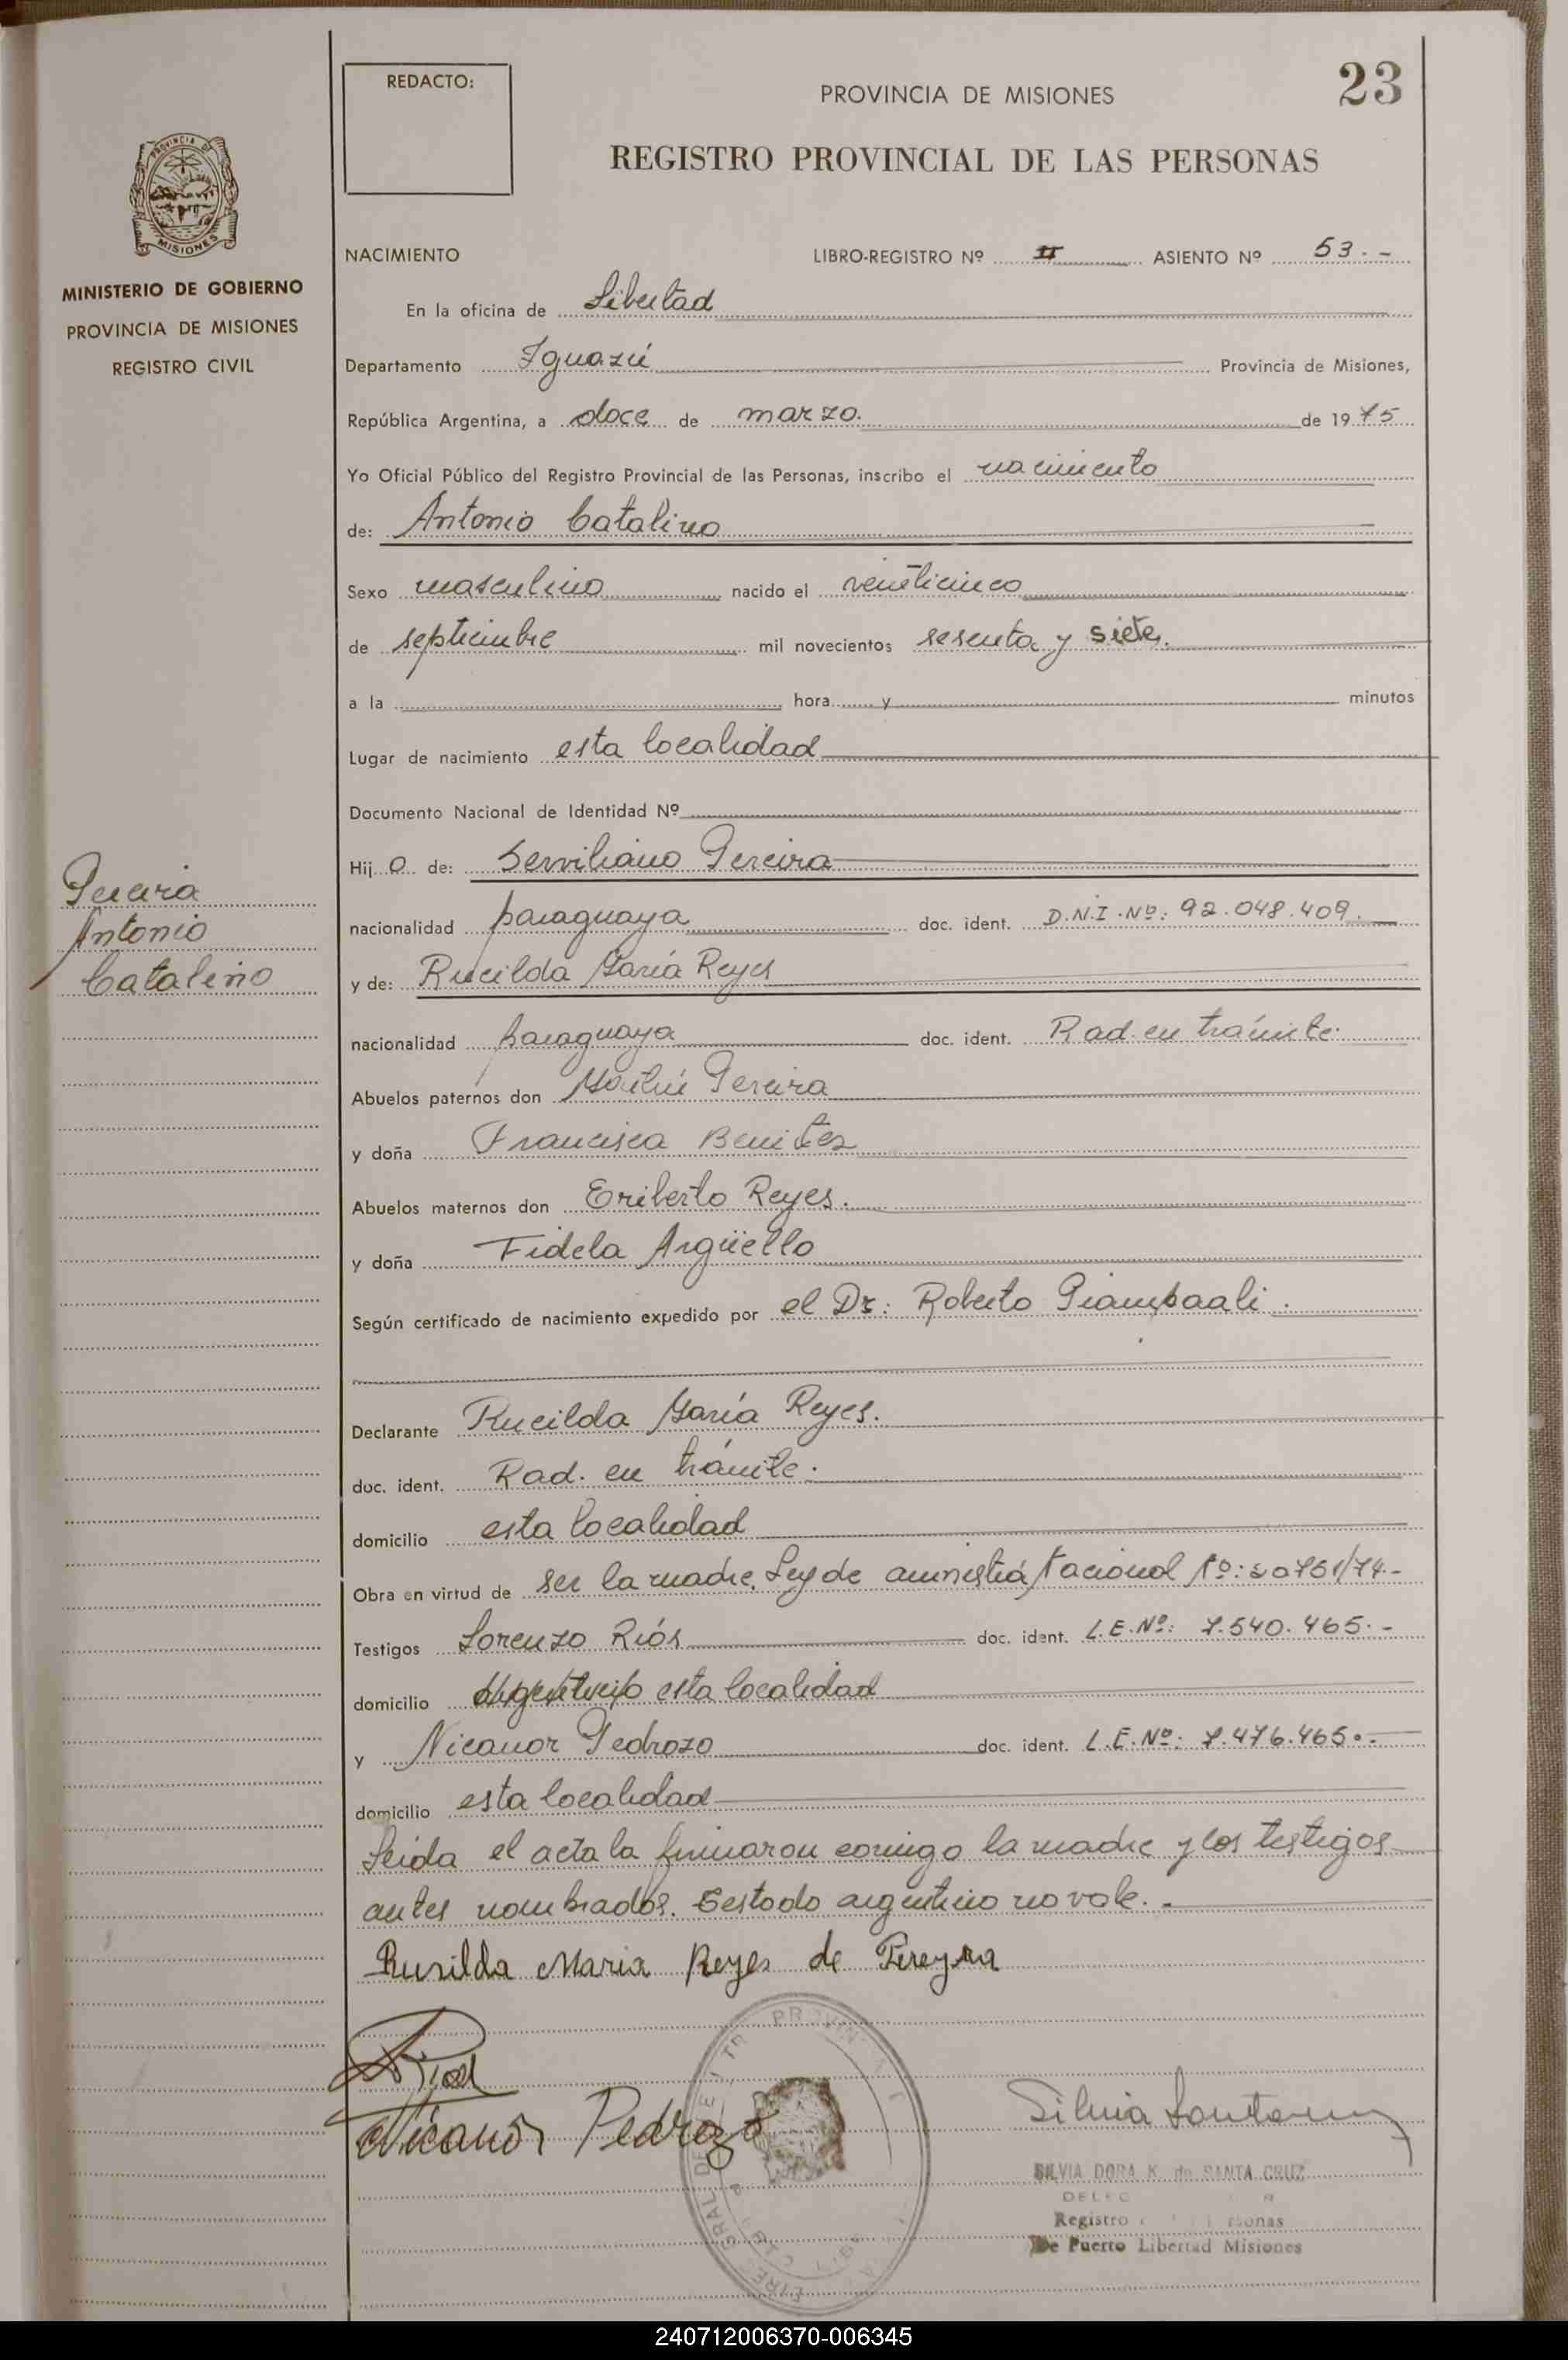 REDACTO:
PROVINCIA DE MISIONES
23
REGISTRO PROVINCIAL DE LAS PERSONAS
PROVINCIA DE
MISIONES
MINISTERIO DE GOBIERNO
PROVINCIA DE MISIONES
REGISTRO CIVIL
NACIMIENTO LIBRO-REGISTRO Nº II ASIENTO Nº 53.-
En la oficina de Libertad
Departamento Iguazú Provincia de Misiones,
República Argentina, a doce de marzo. de 1975
Yo Oficial Público del Registro Provincial de las Personas, inscribo el nacimiento
de: Antonio Catalino
Sexo masculino nacido el veinticinco
de septiembre mil novecientos sesenta y siete.
a la hora y minutos
Lugar de nacimiento esta localidad
Documento Nacional de Identidad Nº
Hij o de: Serviliano Pereira
nacionalidad paraguaya doc. ident. D.N.I. Nº: 92.048.409.
y de: Rucilda María Reyes
nacionalidad paraguaya doc. ident. Rad. en trámite.
Abuelos paternos don Pereira
y doña Francisca Benitez
Abuelos maternos don Eriberto Reyes.
y doña Fidela Argüello
Según certificado de nacimiento expedido por el Dr: Roberto
Declarante Rucilda María Reyes.
doc. ident. Rad. en trámite.
domicilio esta localidad
Obra en virtud de ser la madre. Ley de amnistía Nacional Nº: 20751/74.-
Testigos Lorenzo Riós doc. ident. L.E. Nº: 7.540.465.-
domicilio argentino esta localidad
y Nicanor Pedrozo doc. ident. L.E. Nº: 7.476.465.-
domicilio esta localidad
Leida el acta la firmaron conmigo la madre y los testigos
antes nombrados. Testado argentino no vale.-
Rusilda Maria Reyes de Pereyra
Rios
Nicanor Pedrozo
Silvia
SILVIA DORA K. de SANTA CRUZ
Registro
De Puerto Libertad Misiones
Pereira
Antonio
Catalino
240712006370-006345